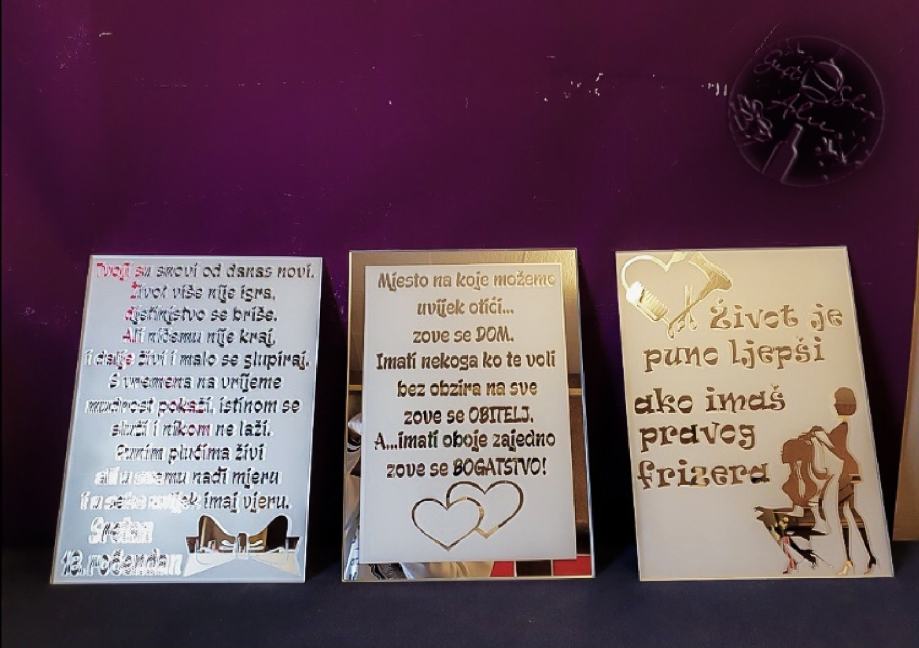 Tvoji su snovi od danas novi.
Život više nije igra,
djetinjstvo se briše.
Ali ničemu nije kraj,
i dalje živi i malo se glupiraj.
S vremena na vrijeme
mudrost pokaži, istinom se
služi i nikom ne laži.
Punim plućima živi
ali u svemu nađi mjeru
i u sebe uvijek imaj vjeru.
Sretan
18. rođendan
Mjesto na koje možemo
uvijek otići...
zove se DOM.
Imati nekoga ko te voli
bez obzira na sve
zove se OBITELJ.
A...imati oboje zajedno
zove se BOGATSTVO!
Život je
puno ljepši
ako imaš
pravog
frizera